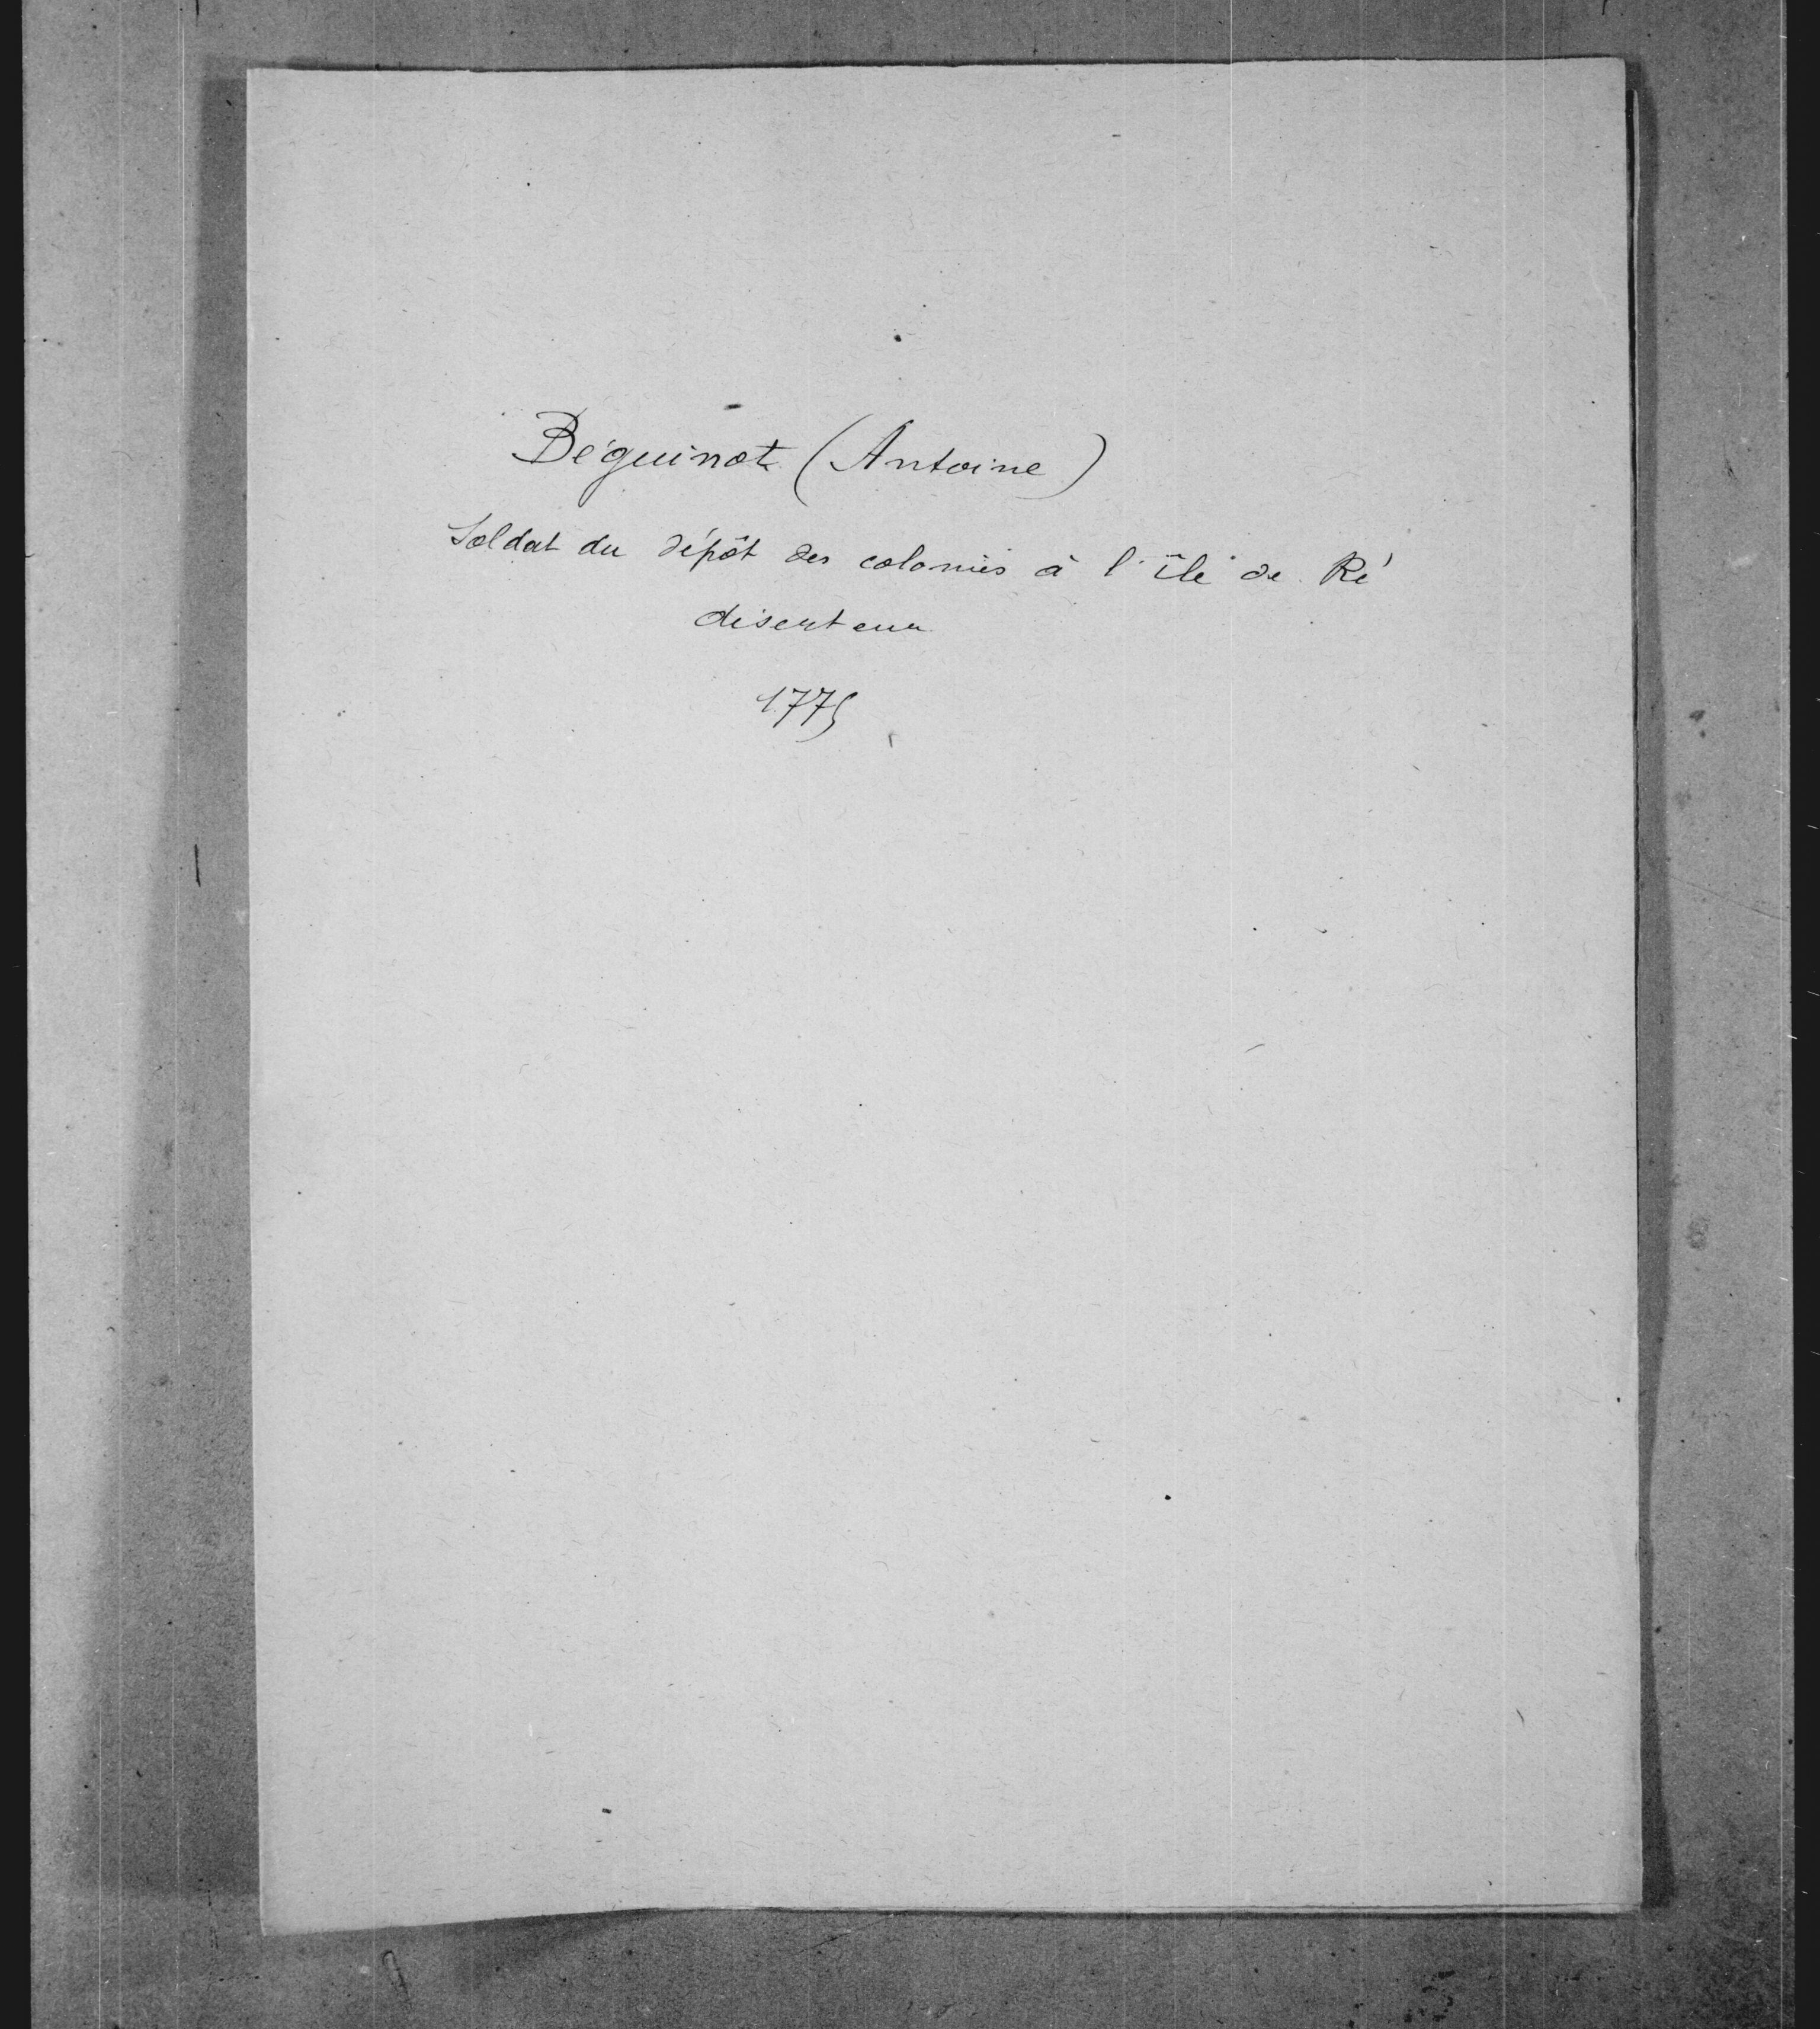 Béguinot (Antoine)
Soldat du dépôt des colonies à l'île de Ré
déserteur
1775